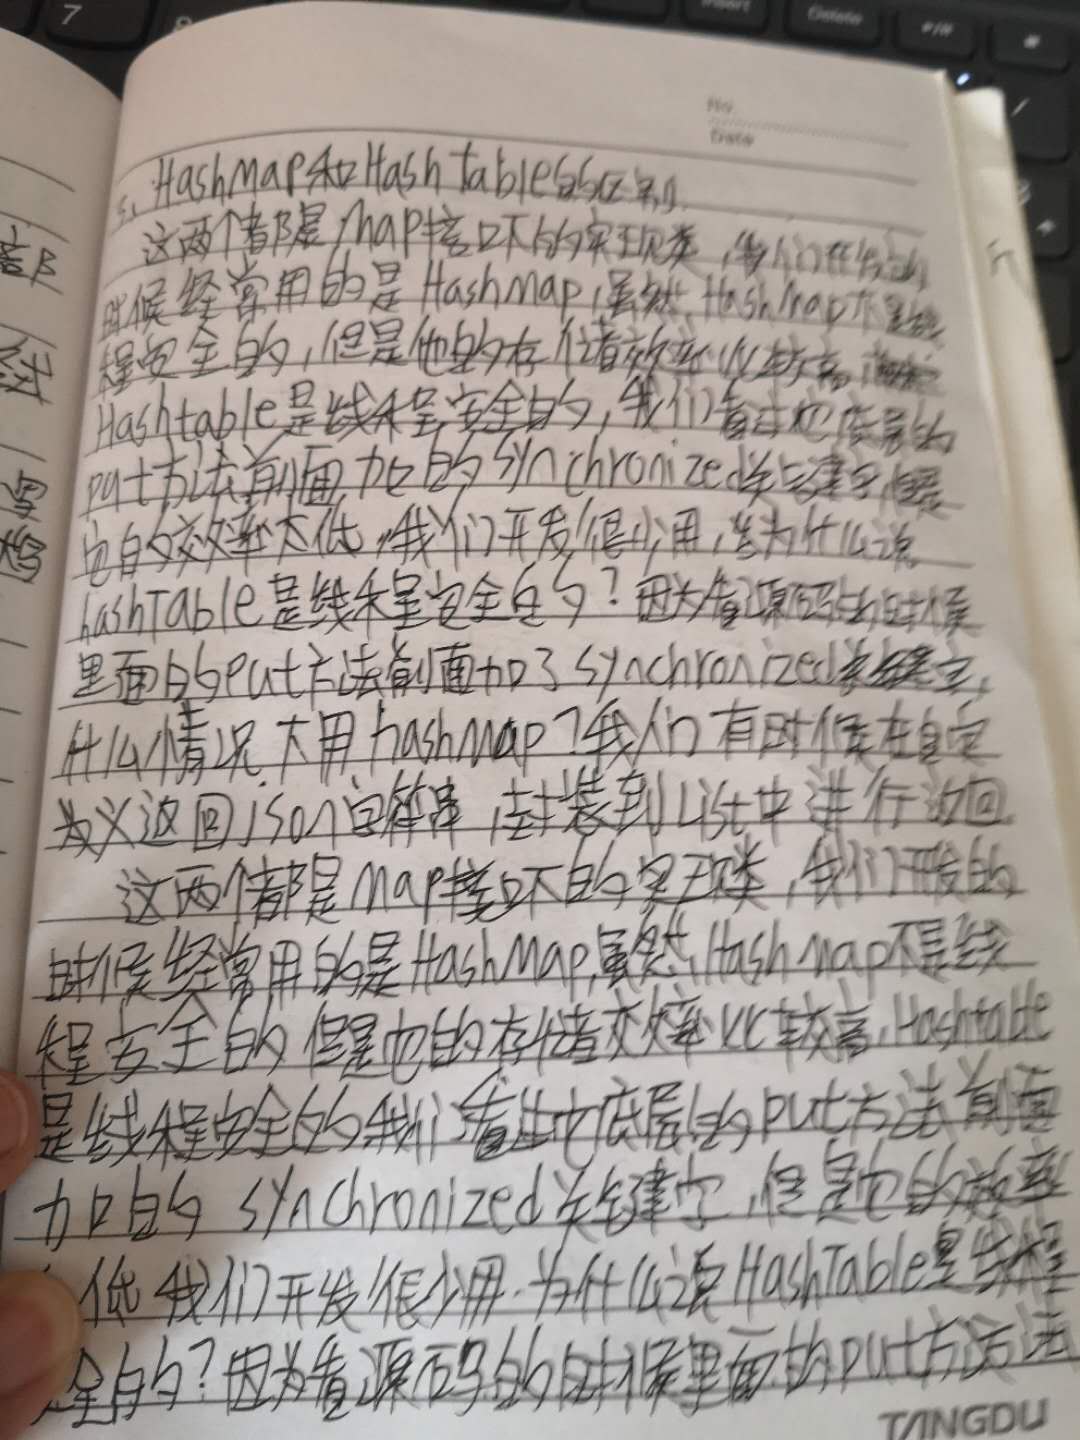 7
Insert
Delete
No.
Date
HashMap和HashTable的区别
这两个都是Map接口下的实现类,我们在开发的
时候经常用的是HashMap,虽然,HashMap不是线
程安全的,但是他的存储效率比较高,
Hashtable是线程安全的,我们看出他底层的
put方法前面,加的synchronized关键字,但是
它的效率太低,我们开发很少用,为什么说
hashTable是线程安全的?因为看源码的时候
里面的put方法前面加了synchronized关键字,
什么情况不用hashmap?我们有时候在自定
义返回json字符串,封装到List中进行返回
这两个都是Map接口下的实现类,我们开发的
时候经常用的是HashMap,虽然,Hashmap不是线
程安全的但是他的存储效率比较高,Hashtable
是线程安全的我们看出它底层的put方法前面
加的synchronized关键字,但是它的效率
低我们开发很少用.为什么说HashTable是线程
全的?因为看源码的时候里面的put方法
部
TANGDU